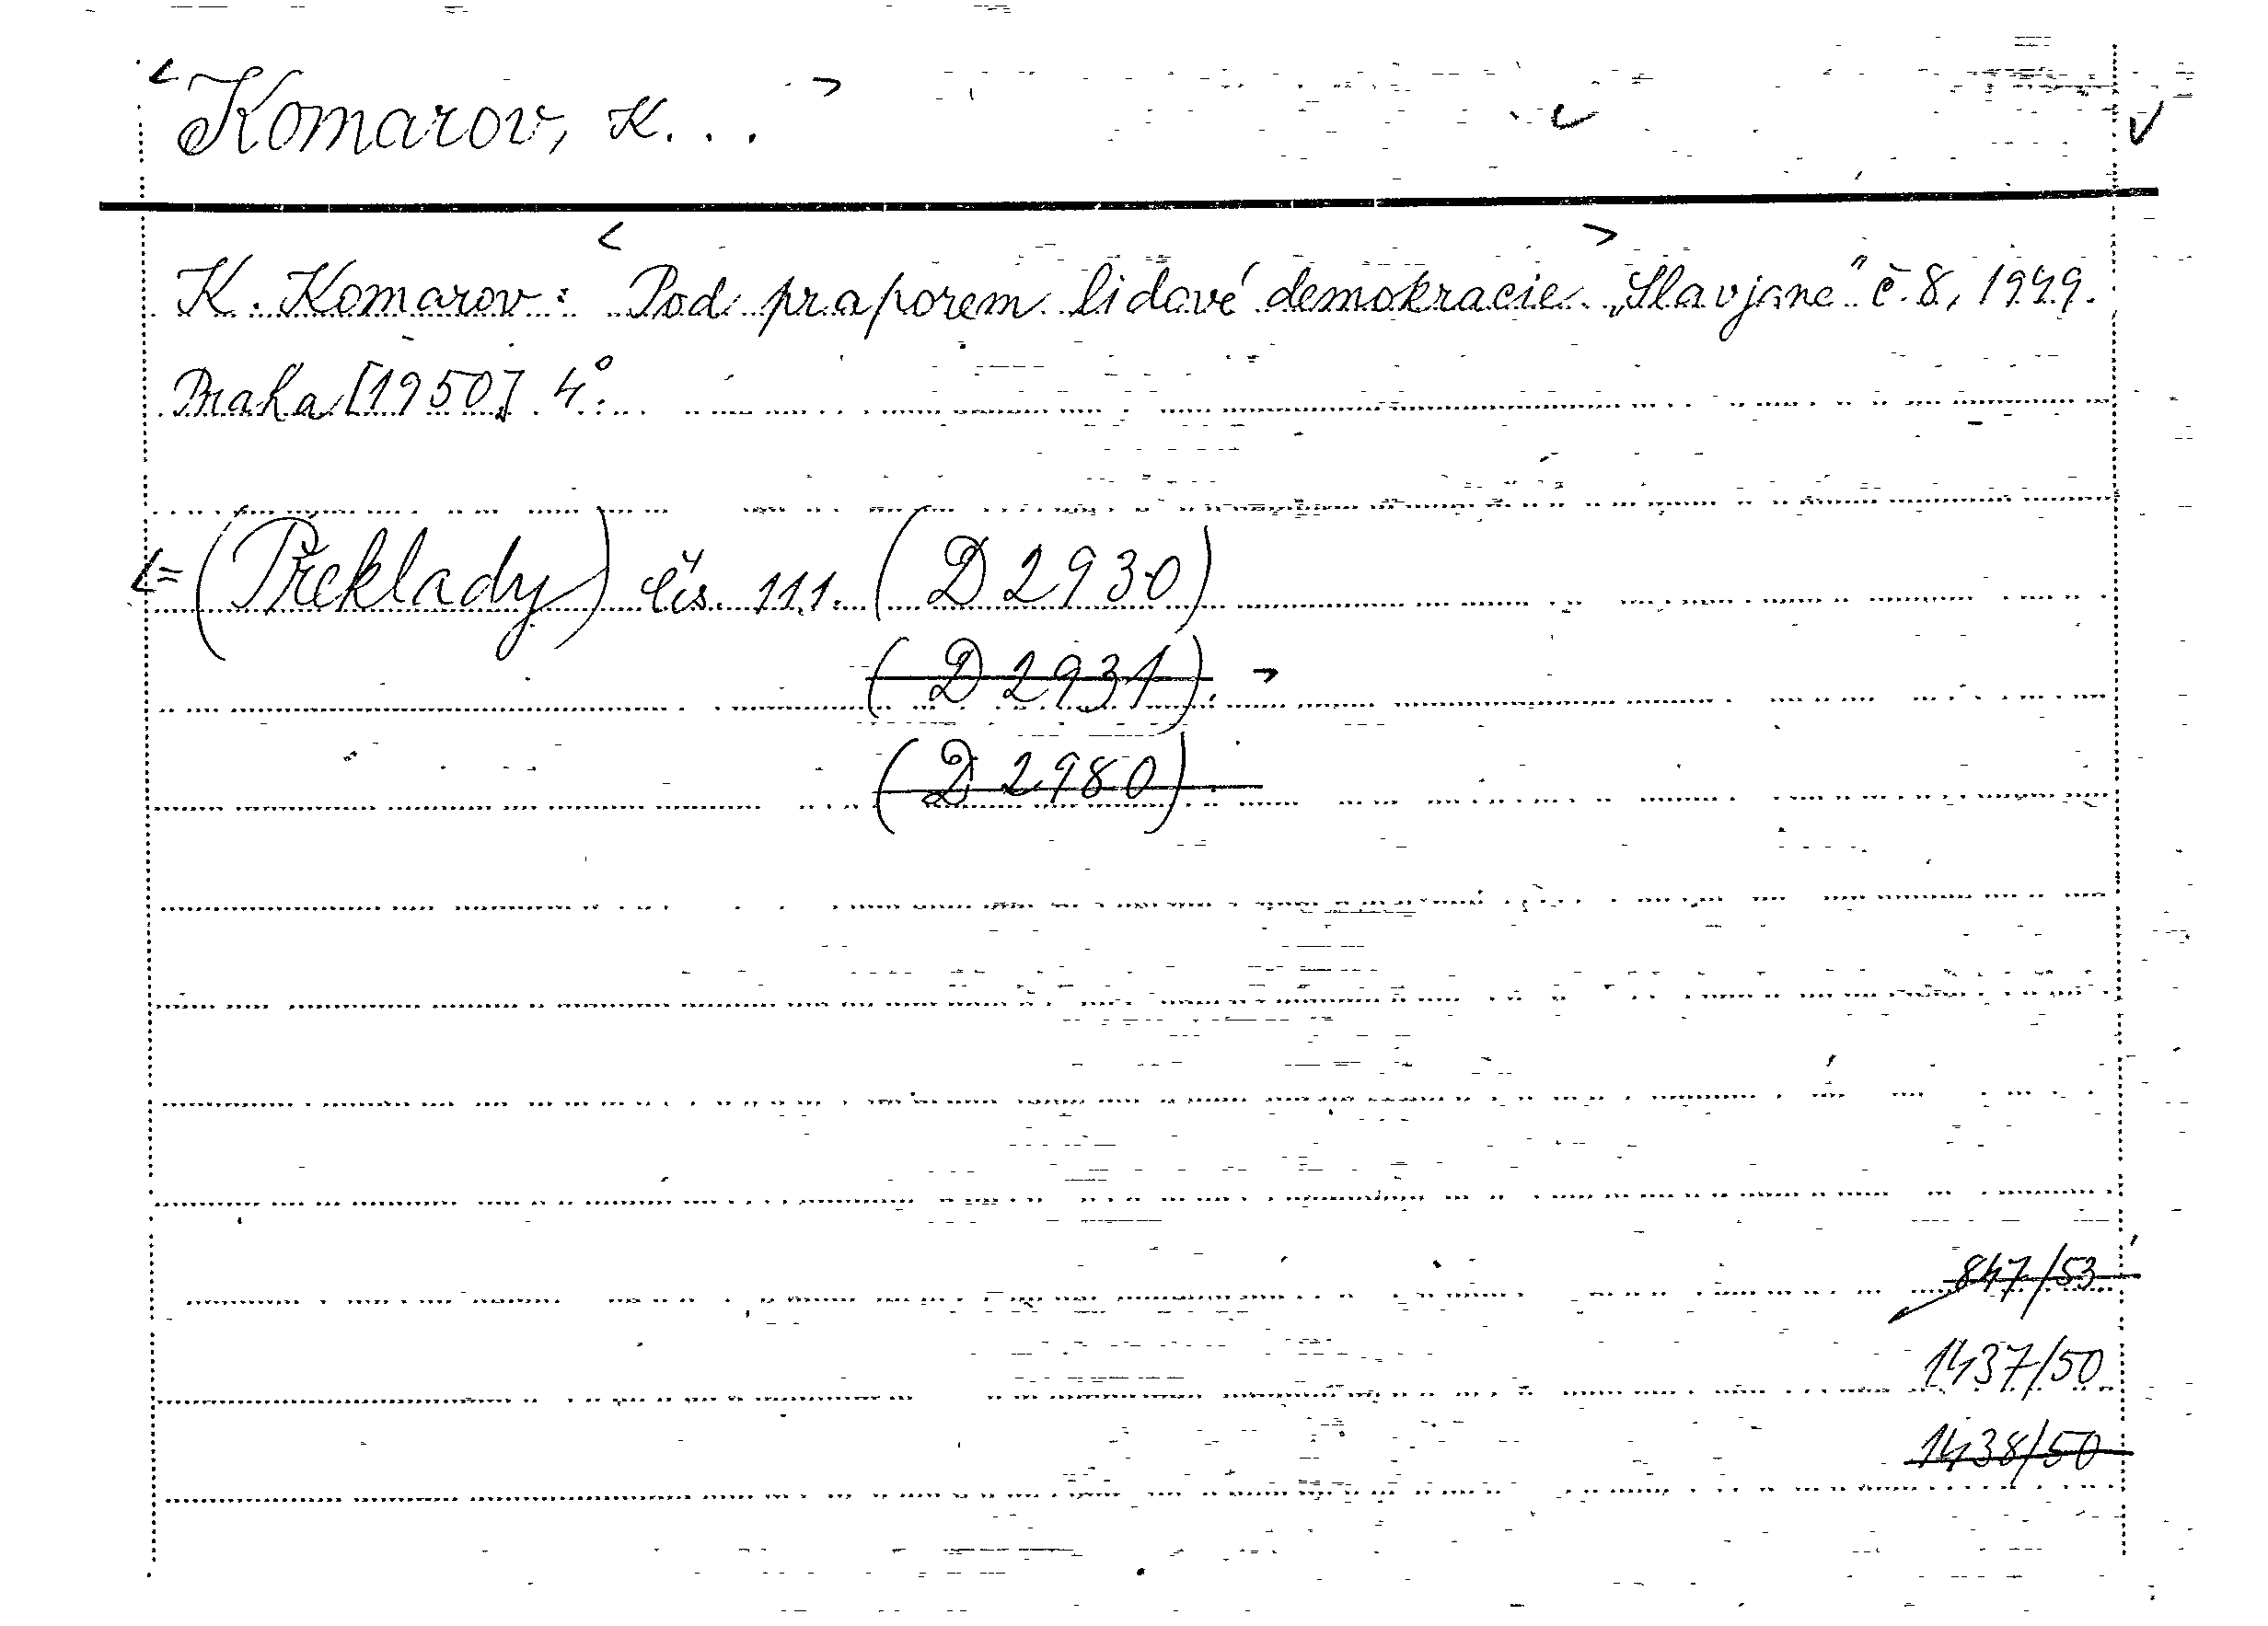 Komarov, K...
K. Komarov: Pod praporem lidové demokracie. „Slavjane" č. 8, 1949.
Praha [1950] 4°.
= (Překlady) čís. 111. (D 2930)
(D 2931).
(D 2980).
847/53
1437/50
1438/50